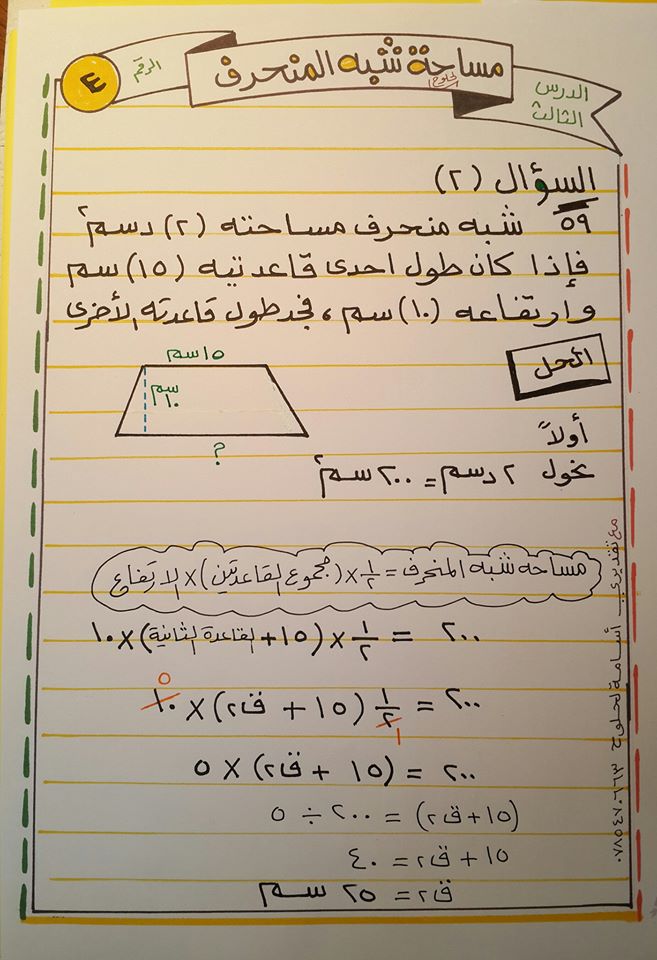 مساحة شبه المنحرف
الدرس الثالث
الرقم
٤
السؤال (٢)
٥٩ شبه منحرف مساحته (٢) دسم٢
فإذا كان طول احدى قاعدتيه (١٥) سم
وارتفاعه (١٠) سم ، فجد طول قاعدته الأخرى
الحل
١٥ سم
١٠ سم
?
أولاً
نحول ٢ دسم٢ = ٢٠٠ سم٢
مساحة شبه المنحرف = ١/٢ × (مجموع القاعدتين) × الارتفاع
٢٠٠ = ١/٢ × (١٥ + القاعدة الثانية) × ١٠
٢٠٠ = ١/٢ (١٥ + ق٢) × ١٠
٥
١
٢٠٠ = (١٥ + ق٢) × ٥
(١٥ + ق٢) = ٢٠٠ ÷ ٥
١٥ + ق٢ = ٤٠
ق٢ = ٢٥ سم
مع تقديري أسامة لحلوح